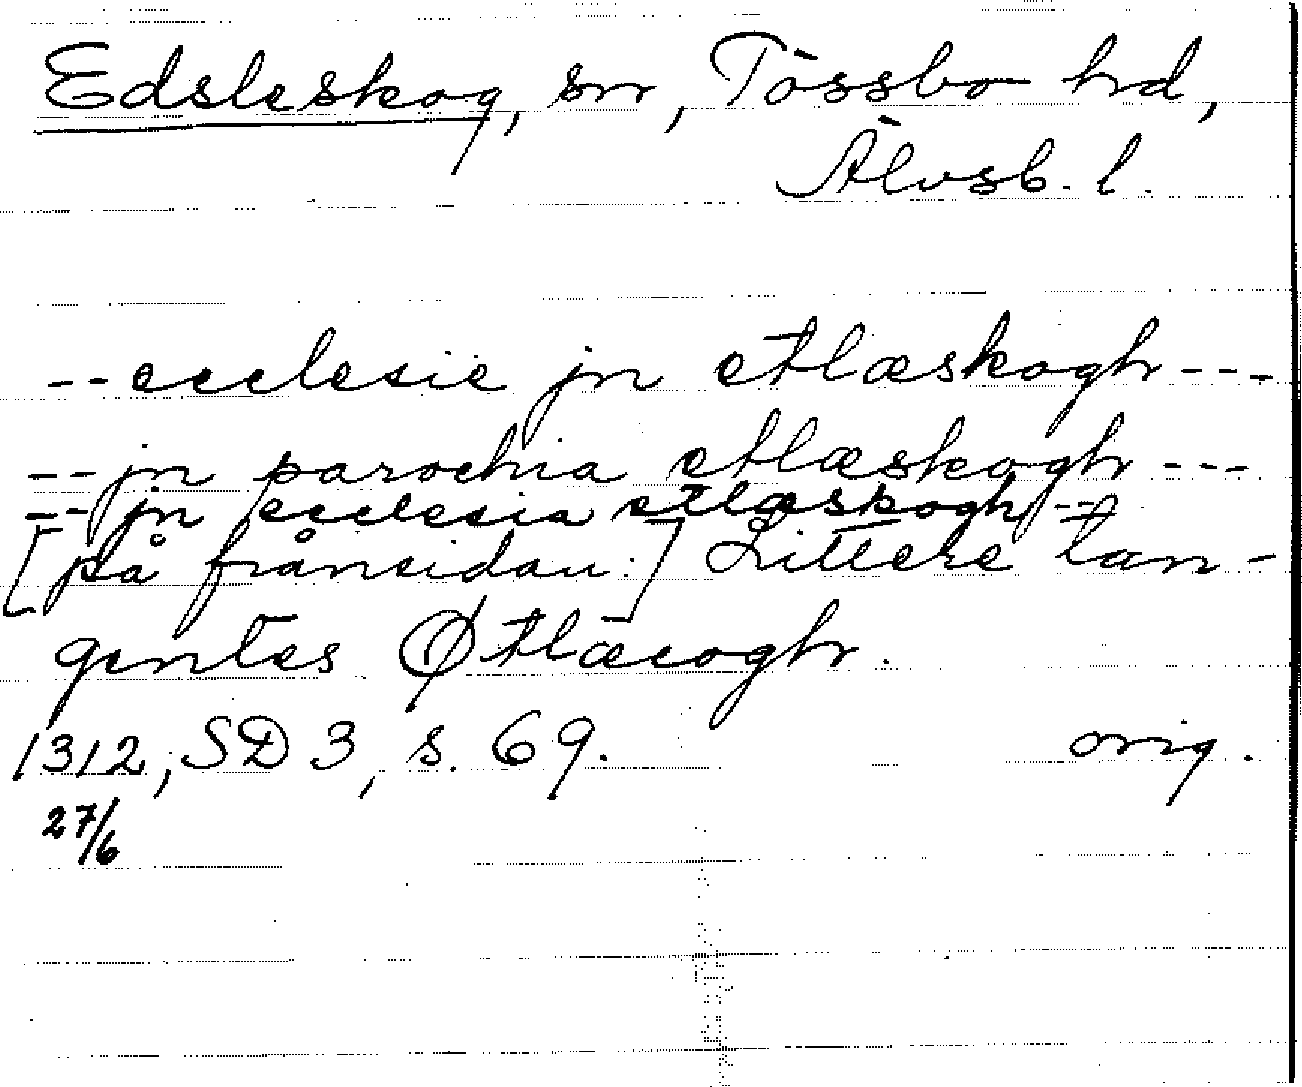 Edsleskog, sn, Tössbo hd,
Älvsb. l.
-- ecclesie jn etlæskogh ---
-- jn parochia etlæskogh ---
-- jn ecclesia etlæskogh --
[på frånsidan:] Littere tan-
gentes Øtlæcogh.
1312, SD 3, s. 69. orig.
27/6